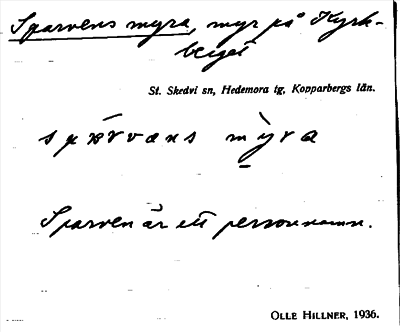 Sparvens myra, myr på Kyrk-
berget
St. Skedvi sn, Hedemora tg, Kopparbergs län.
sparvens myra
Sparven är ett personnamn.
OLLE HILLNER, 1936.